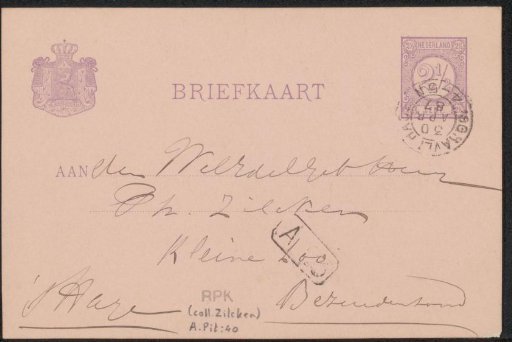 NEDERLAND
2½
BRIEFKAART
'SGRAVENHAGE
30
APR
87
AAN den WelEdelgeb Heer
Ph. Zilcken
Kleine Loo
Bezuidenhout
's Hage
RPK
(coll. Zilcken)
A. Pit: 40